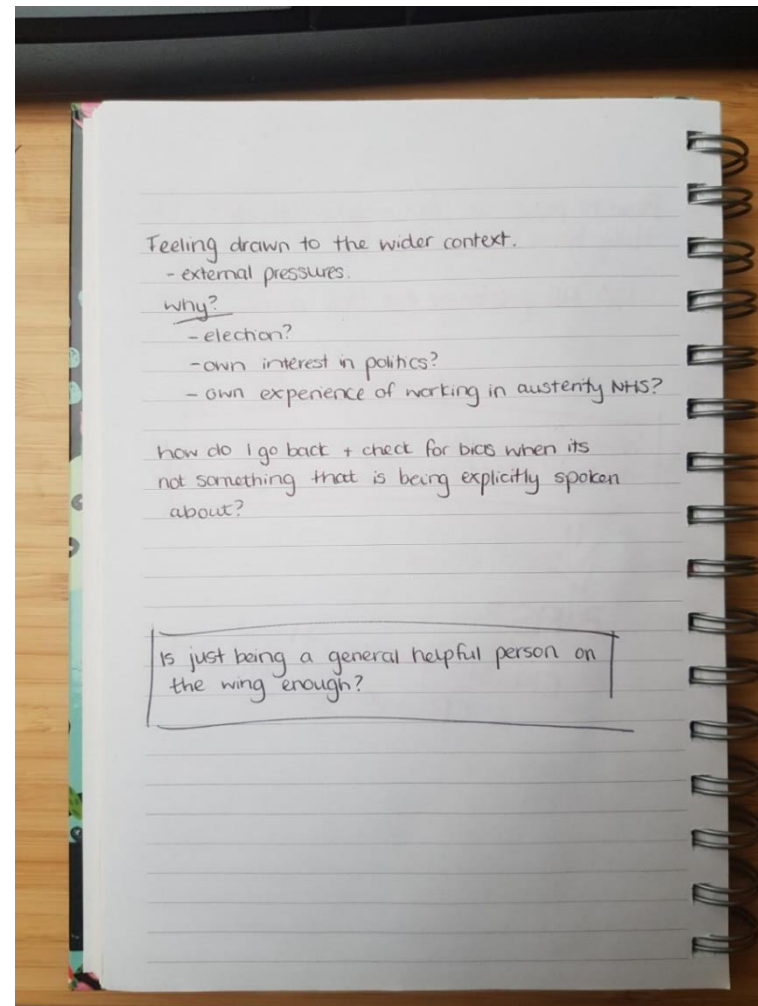 Feeling drawn to the wider context.
- external pressures.
why?
- election?
- own interest in politics?
- own experience of working in austerity NHS?
how do I go back + check for bias when its
not something that is being explicitly spoken
about?
is just being a general helpful person on
the wing enough?